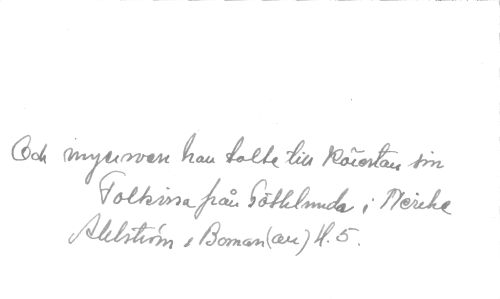 Och ingen han tolte till Kärestan sin
Folkvisa från Götlunda i Nerike
Ahlström & Boman (arr) H. 5.